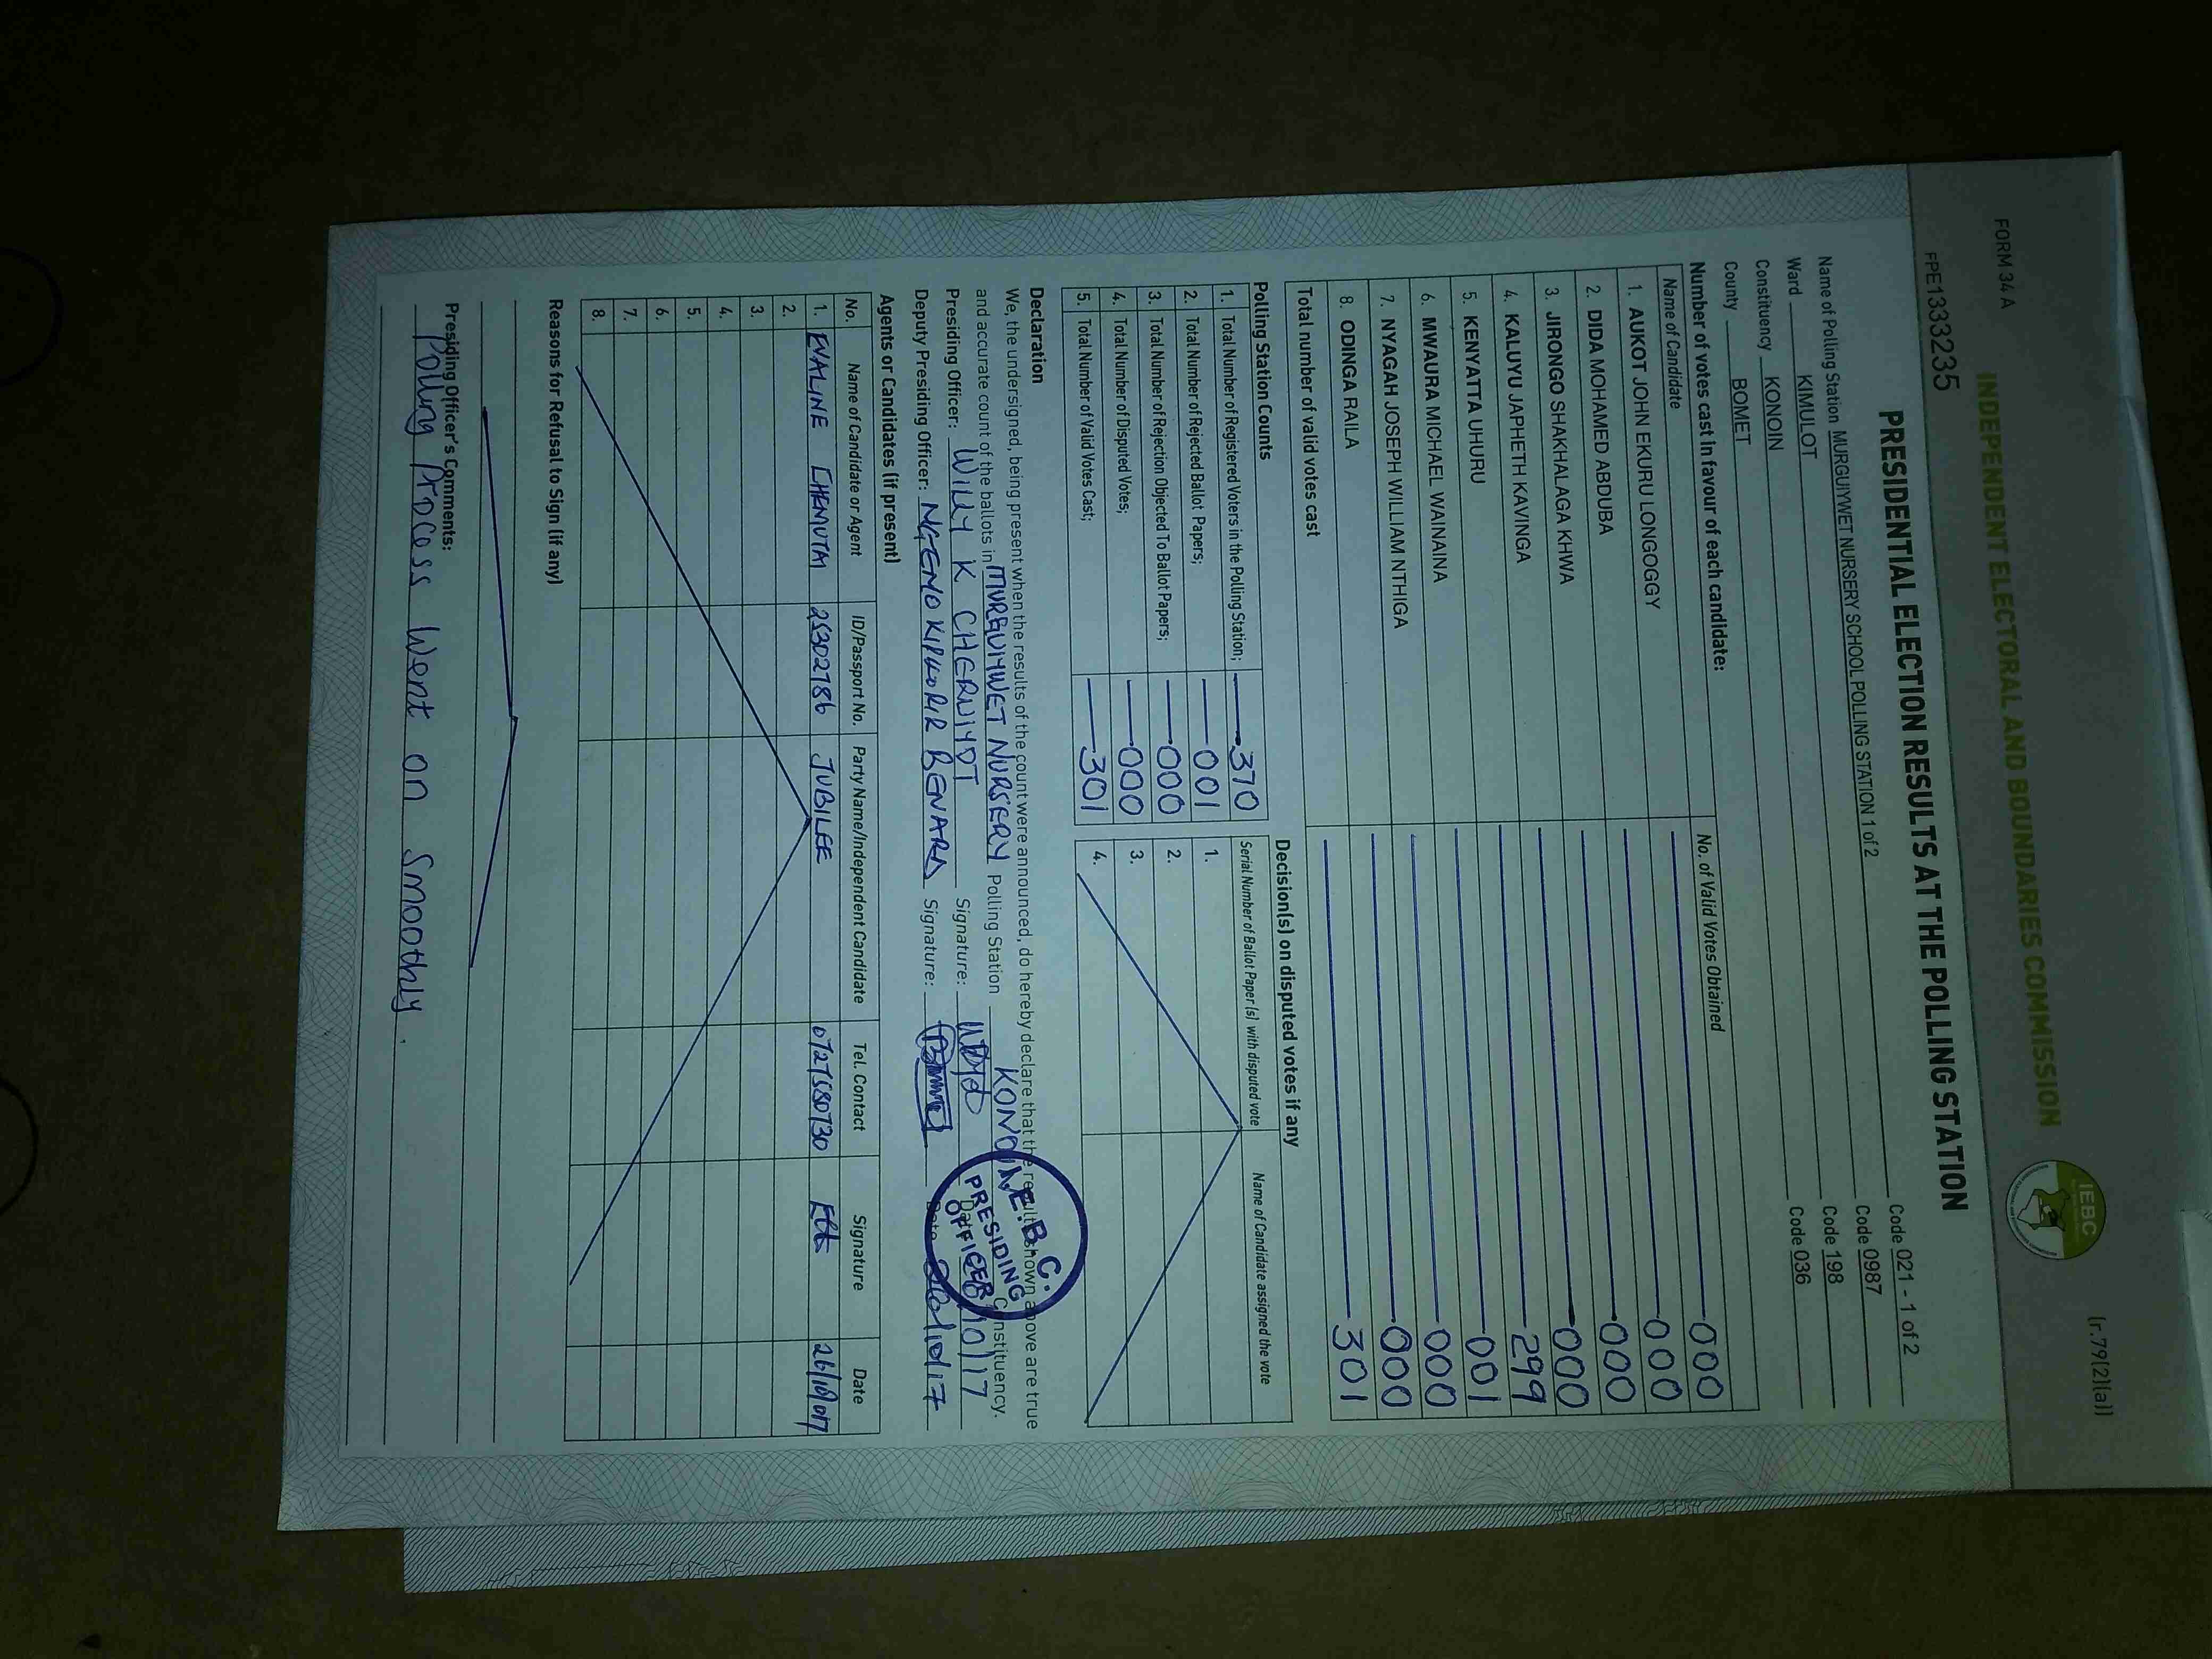 FORM 34 A
(r.79(2)(a))
INDEPENDENT ELECTORAL AND BOUNDARIES COMMISSION
IEBC
FPE1333235
PRESIDENTIAL ELECTION RESULTS AT THE POLLING STATION
Name of Polling Station MURGUIYWET NURSERY SCHOOL POLLING STATION 1 of 2 Code 021 - 1 of 2
Ward KIMULOT Code 0987
Constituency KONOIN Code 198
County BOMET Code 036
Number of votes cast in favour of each candidate:
Name of Candidate No. of Valid Votes Obtained
1. AUKOT JOHN EKURU LONGOGGY 000
2. DIDA MOHAMED ABDUBA 000
3. JIRONGO SHAKHALAGA KHWA 000
4. KALUYU JAPHETH KAVINGA 000
5. KENYATTA UHURU 299
6. MWAURA MICHAEL WAINAINA 001
7. NYAGAH JOSEPH WILLIAM NTHIGA 000
8. ODINGA RAILA 000
Total number of valid votes cast 301
Polling Station Counts
1. Total Number of Registered Voters in the Polling Station; 370
2. Total Number of Rejected Ballot Papers; 001
3. Total Number of Rejection Objected To Ballot Papers; 000
4. Total Number of Disputed Votes; 000
5. Total Number of Valid Votes Cast; 301
Decision(s) on disputed votes if any
Serial Number of Ballot Paper (s) with disputed vote Name of Candidate assigned the vote
1.
2.
3.
4.
Declaration
We, the undersigned, being present when the results of the count were announced, do hereby declare that the results shown above are true
and accurate count of the ballots in MURGUIYWET NURSERY Polling Station KONOIN Constituency.
Presiding Officer: WILLY K CHERUIYOT Signature: Date 10/17
Deputy Presiding Officer: NGENO KIPKORIR BENARD Signature: Date
I.E.B.C.
PRESIDING
OFFICER
Agents or Candidates (if present)
No. Name of Candidate or Agent ID/Passport No. Party Name/Independent Candidate Tel. Contact Signature Date
1. EVALINE CHEMUTAI 25302786 JUBILEE 26/10/017
2.
3.
4.
5.
6.
7.
8.
Reasons for Refusal to Sign (if any)
Presiding Officer's Comments:
Polling Process Went on Smoothly.